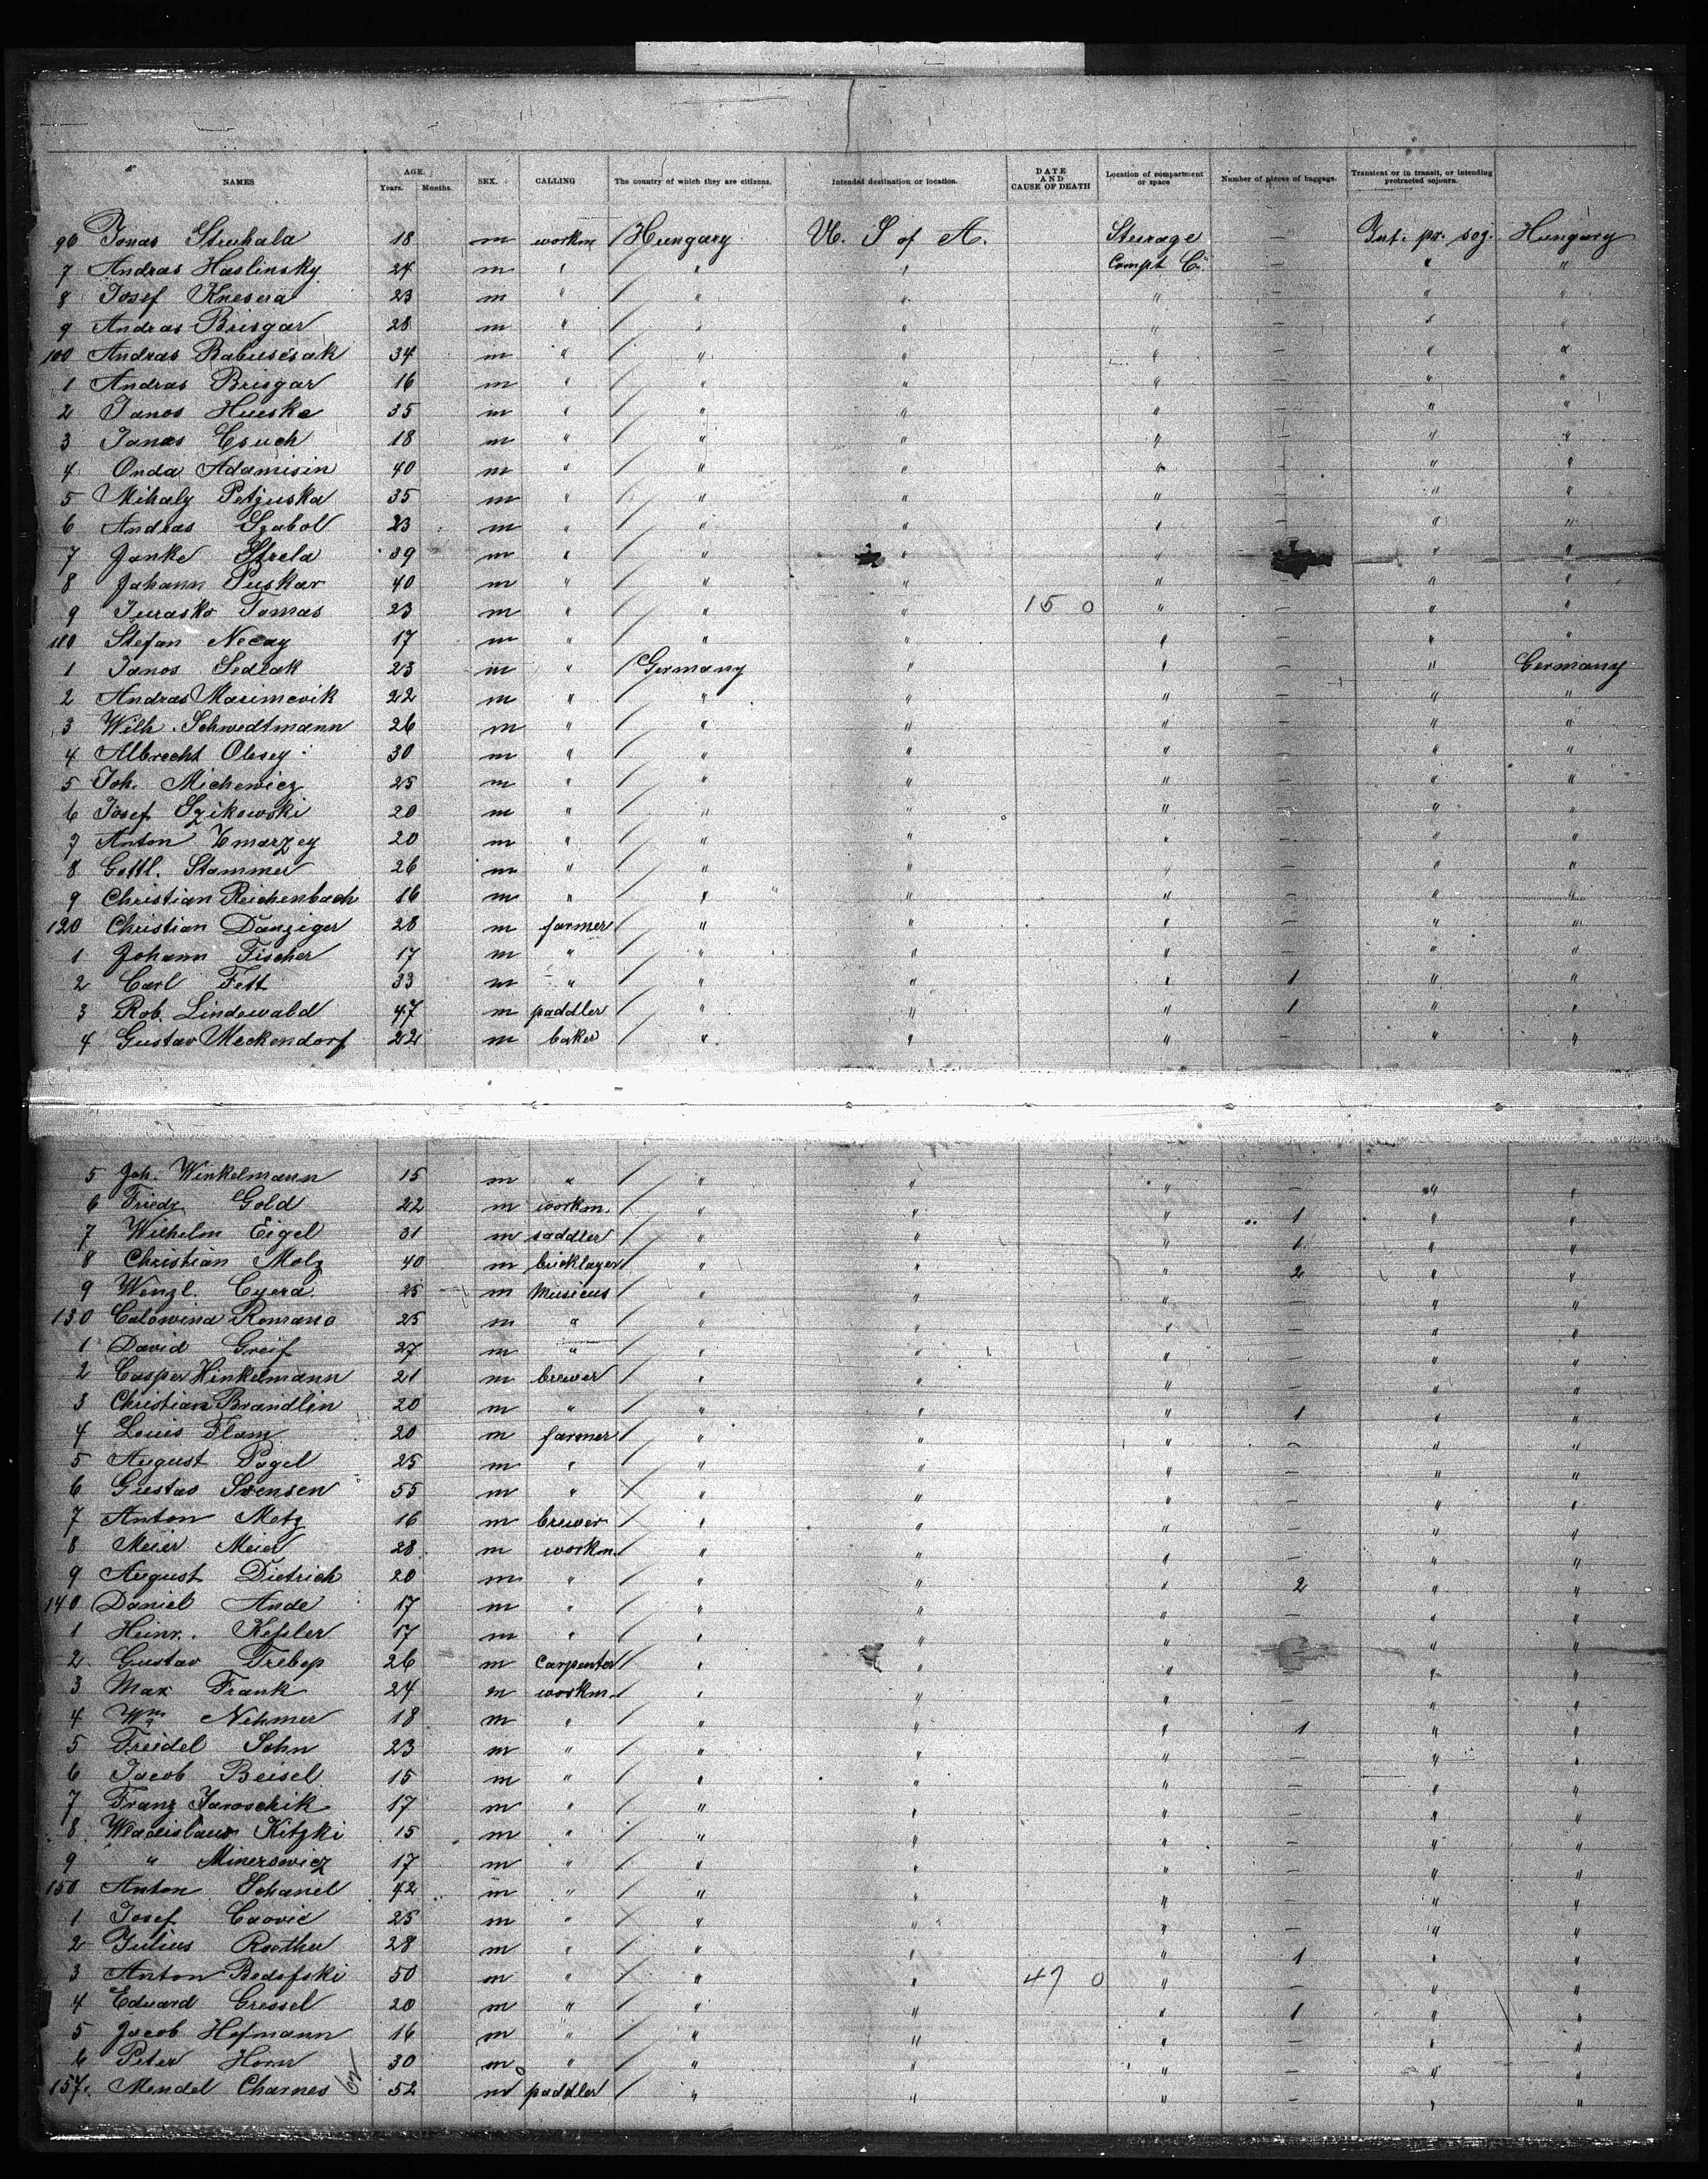 NAMES AGE. Years. Months. SEX. CALLING The country of which they are citizens. Intended destination or location. DATE AND CAUSE OF DEATH Location of compartment or space Number of pieces of baggage. Transient or in transit, or intending protracted sojourn.
96 Jonas Struhala 18 m workm Hungary U. S of A. Steerage — Int. pr. soj. Hungary
7 Andras Haslinsky 24 m " " " Compt C. — " "
8 Josef Knesera 23 m " " " " — " "
9 Andras Brisgar 28 m " " " " — " "
100 Andras Babuscsak 34 m " " " " — " "
1 Andras Brisgar 16 m " " " " — " "
2 Janos Hueske 35 m " " " " — " "
3 Janos Csuch 18 m " " " " — " "
4 Onda Adamisin 40 m " " " " — " "
5 Mihaly Petjuska 35 m " " " " — " "
6 Andras Szabol 23 m " " " " — " "
7 Janke Strela 39 m " " " " " "
8 Johann Puskar 40 m " " " " — " "
9 Jurasko Tomas 23 m " " " 15 0 " — " "
110 Stefan Necay 17 m " " " " — " "
1 Janos Sedlak 23 m " Germany " " — " Germany
2 Andras Masimcvik 22 m " " " " — " "
3 Wilh. Schwedtmann 26 m " " " " — " "
4 Albrecht Olesey 30 m " " " " — " "
5 Joh. Michewicz 25 m " " " " — " "
6 Josef Szikowski 20 m " " " " — " "
7 Anton Xmarzey 20 m " " " " — " "
8 Gottl. Stammer 26 m " " " " — " "
9 Christian Reichenbach 16 m " " " " — " "
120 Christian Danziger 28 m farmer " " " — " "
1 Johann Fischer 17 m " " " " — " "
2 Carl Fett 33 m " " " " 1 " "
3 Rob. Lindewald 47 m paddler " " " 1 " "
4 Gustav Meckendorf 22 m baker " " " — " "
5 Joh. Winkelmann 15 m " " " " — " "
6 Friedr Gold 22 m workm. " " " 1 " "
7 Wilhelm Eigel 31 m saddler " " " 1 " "
8 Christian Molz 40 m bricklayer " " " 2 " "
9 Wenzl. Cyera 25 m Musicus " " " — " "
130 Calowina Romano 25 m " " " " — " "
1 David Greif 27 m " " " " — " "
2 Casper Hinkelmann 21 m brewer " " " — " "
3 Christian Brandlin 20 m " " " " 1 " "
4 Louis Flam 20 m farmer " " " — " "
5 August Pagel 25 m " " " " — " "
6 Gustav Svensen 55 m " " " " — " "
7 Anton Metz 16 m brewer " " " — " "
8 Meier Meier 28 m workm. " " " — " "
9 August Dietrich 20 m " " " " 2 " "
140 Daniel Ande 17 m " " " " — " "
1 Heinr. Kessler 17 m " " " " " "
2 Gustav Trebop 26 m Carpenter " " " — " "
3 Max Frank 24 m workm. " " " — " "
4 Wm Nehmer 18 m " " " " 1 " "
5 Freidel Sohn 23 m " " " " — " "
6 Jacob Beisel 15 m " " " " — " "
7 Franz Jaroschik 17 m " " " " — " "
8 Wladislaus Kitzki 15 m " " " " — " "
9 " Minerowicz 17 m " " " " — " "
150 Anton Schanil 42 m " " " " — " "
1 Josef Caovic 25 m " " " " — " "
2 Julius Roethe 28 m " " " " 1 " "
3 Anton Bedofski 50 m " " " 47 0 " — " "
4 Eduard Gressel 20 m " " " " 1 " "
5 Jacob Hofmann 16 m " " " " — " "
6 Peter Horn 30 m " " " " — " "
157. Mendel Charnes 52 m paddler " " " — " "